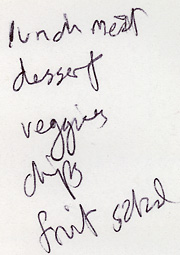 lunch meat
dessert
veggies
chips
fruit salad